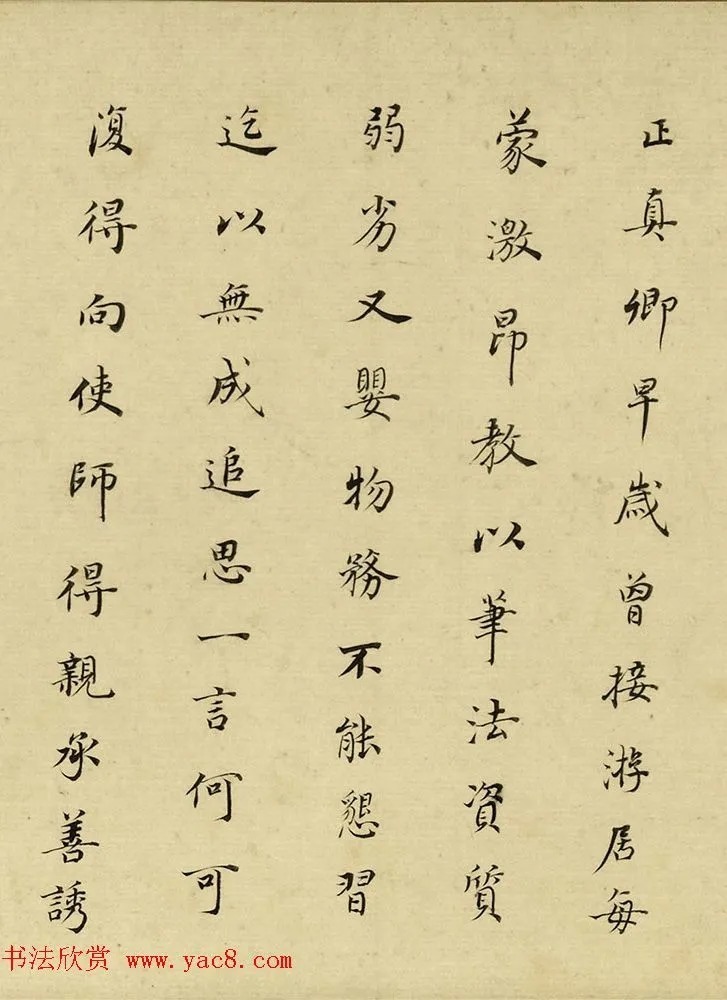 正真卿早歲曾接游居每
蒙激昂教以筆法資質
弱劣又嬰物務不能懇習
迄以無成追思一言何可
復得向使師得親承善誘
书法欣赏 www.yac8.com